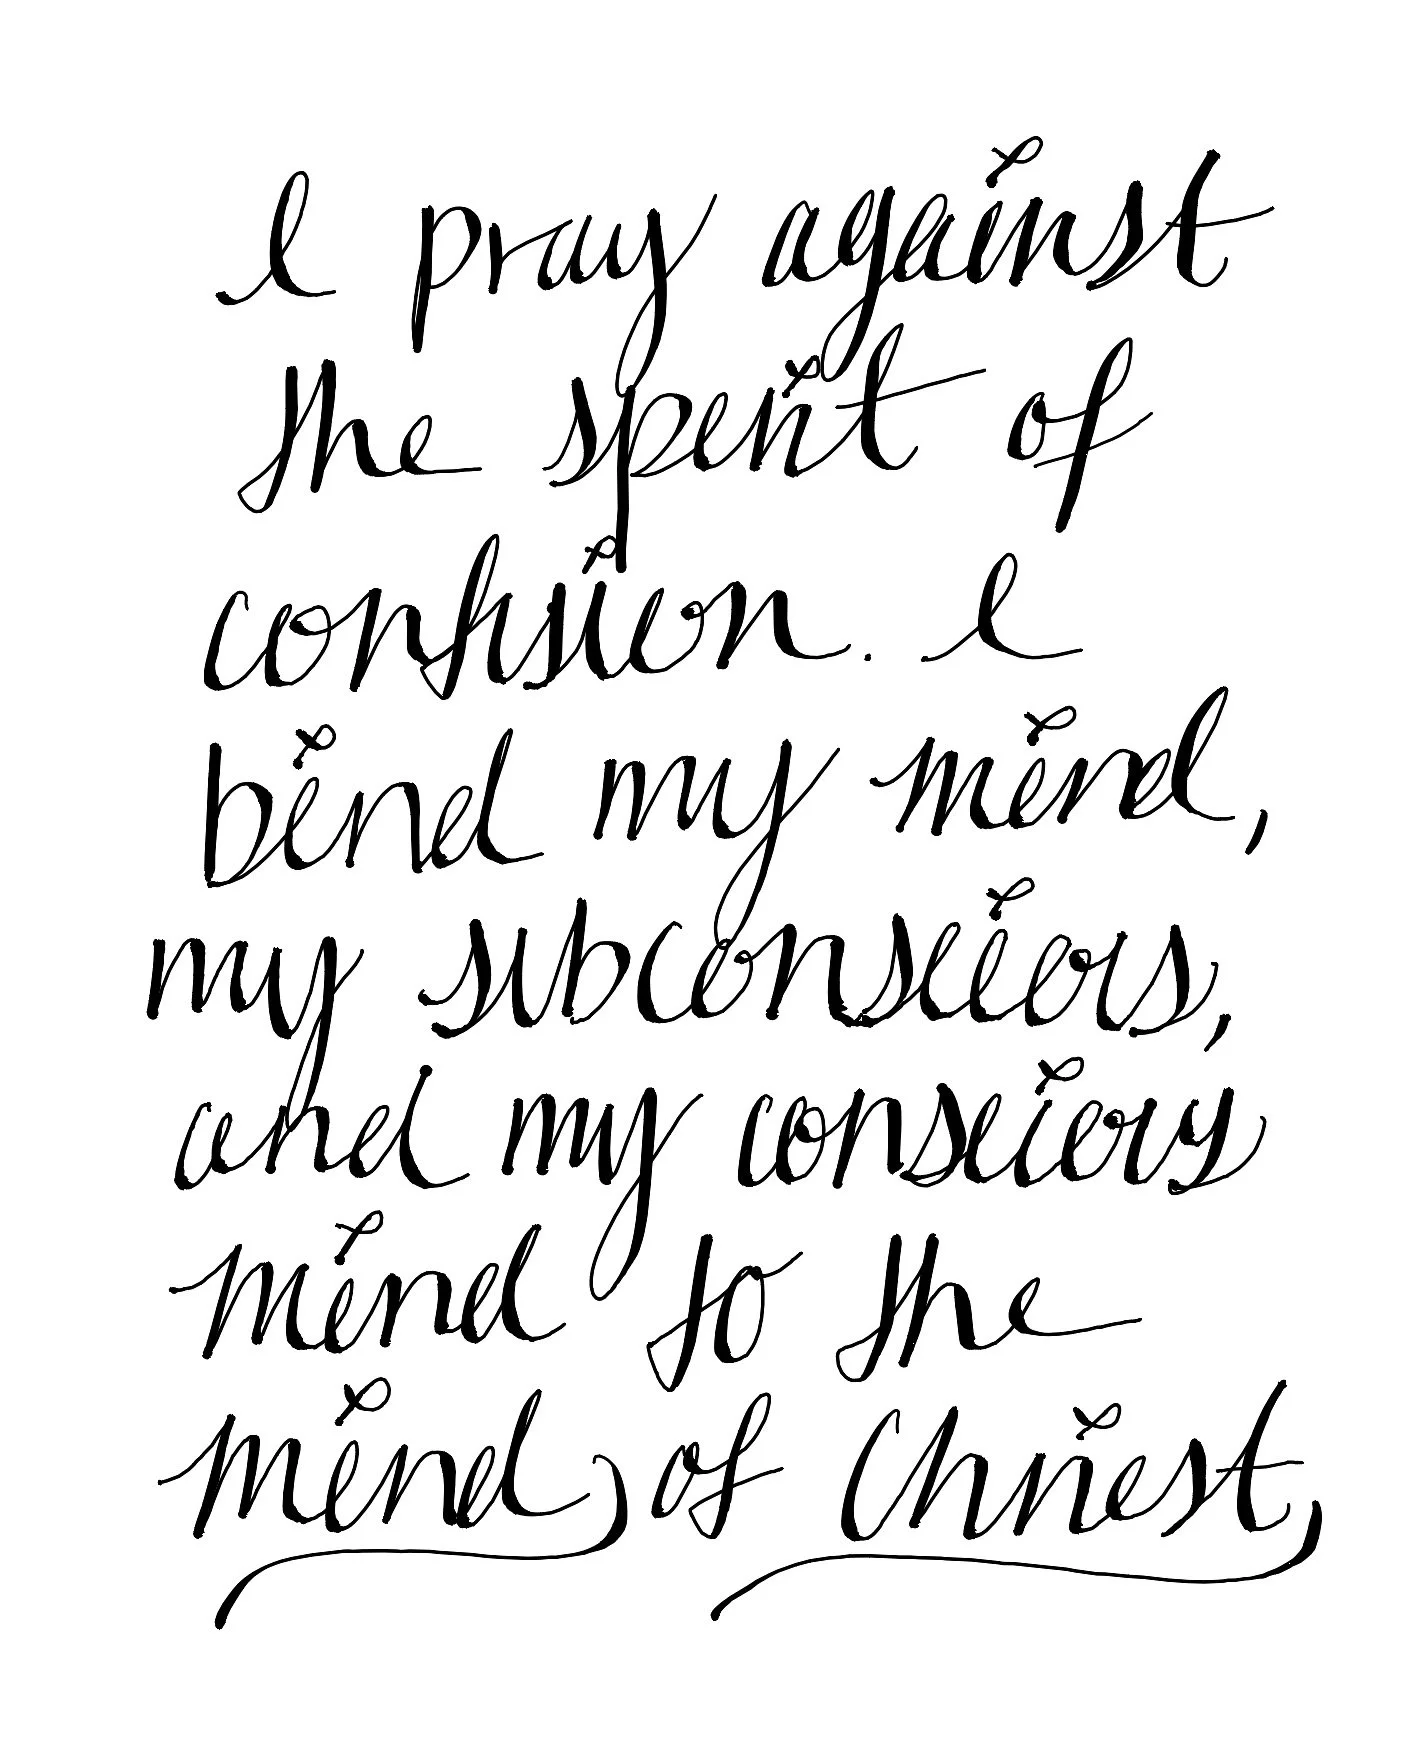 I pray against
the spirit of
confusion. I
bind my mind,
my subconscious,
and my conscious
mind to the
mind of Christ